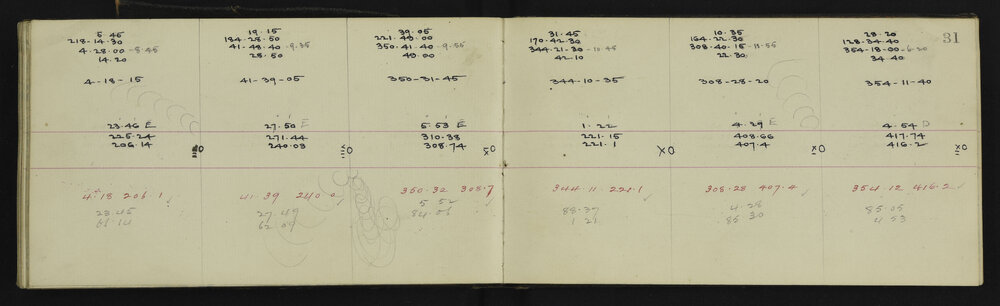 5.45
218.14.30
4.28.00 - 5.45
14.20
4-18-15
23.46 E
225.24
206.14
4.18 206.1 ✓
23.45
61.14
19.15
194.28.50
41.48.40 - 9.35
28.50
41-39-05
27.50 E
271.44
240.03
41.39 240.0 ✓
27.49
62.09
39.05
221.49.00
350.41.40 - 9.55
49.00
350-31-45
5.53 E
310.38
308.74
XO
350.32 308.7 ✓
5.52
84.06
31.45
170.42.30
344.21.30 - 10.45
42.10
344-10-35
1.22
221.15
221.1
XO
344.11 221.1 ✓
88.37
1.21
31
10.35
164.22.30
308.40.15 - 11.55
22.30
308-28-20
4.29 E
408.66
407.4
XO
308.28 407.4 ✓
4.28
85.30
28.20
128.34.40
354-18-00 - 6.20
34.40
354-11-40
4.54 D
417.74
416.2
XO
354.12 416.2 ✓
85.05
4.53